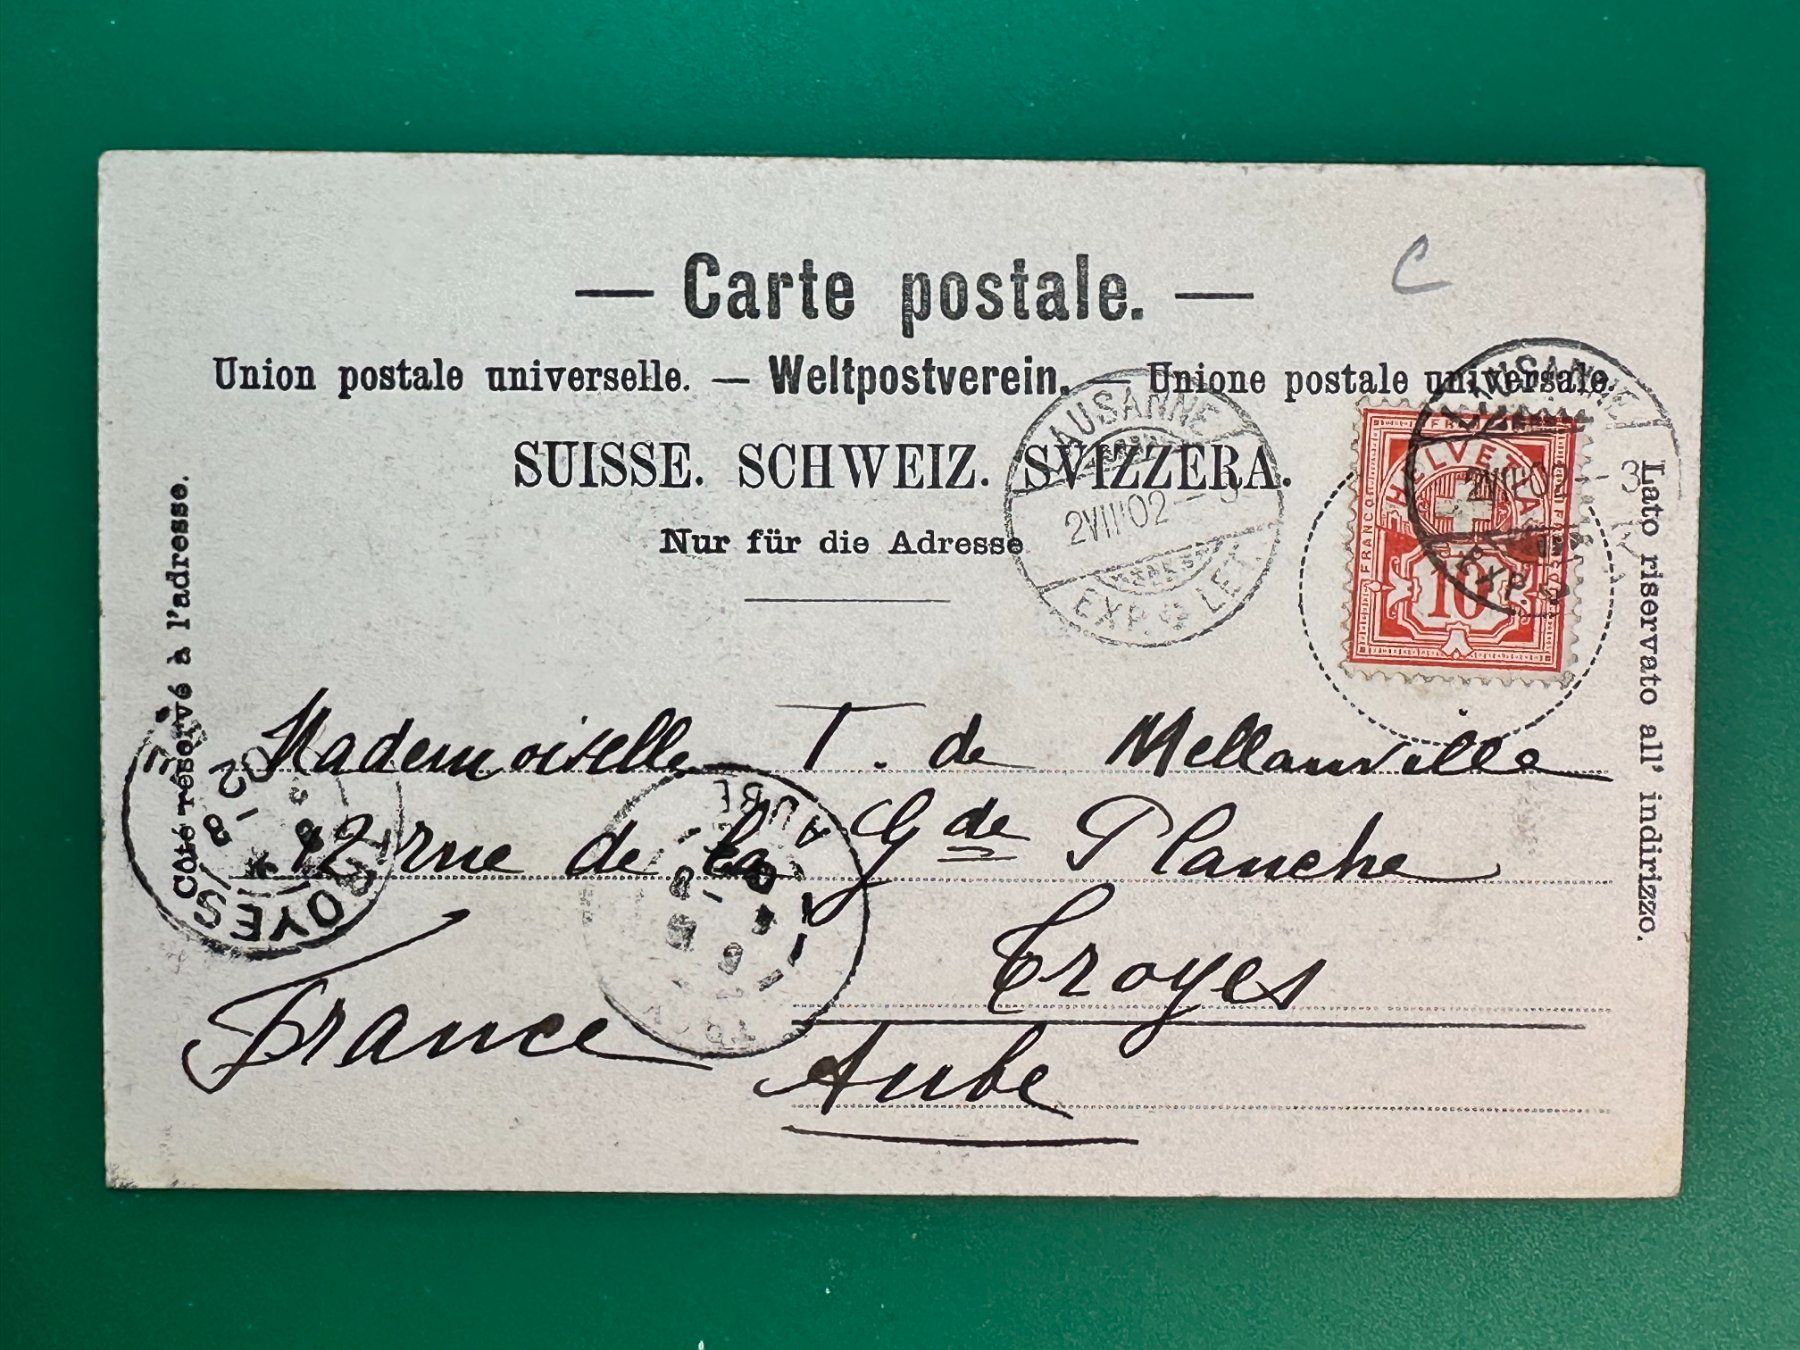 C
— Carte postale. —
Union postale universelle. — Weltpostverein. — Unione postale universale.
SUISSE. SCHWEIZ. SVIZZERA.
Nur für die Adresse
Côté réservé à l'adresse.
Lato riservato all' indirizzo.
LAUSANNE
2 VIII 02 - 3
EXP. LET.
LAUSANNE
2 VIII 02
EXP.
FRANCO
HELVETIA
10
Mademoiselle T. de Mellanville
12 rue de la Gde Planche
Troyes
Aube
France
TROYES
AUBE